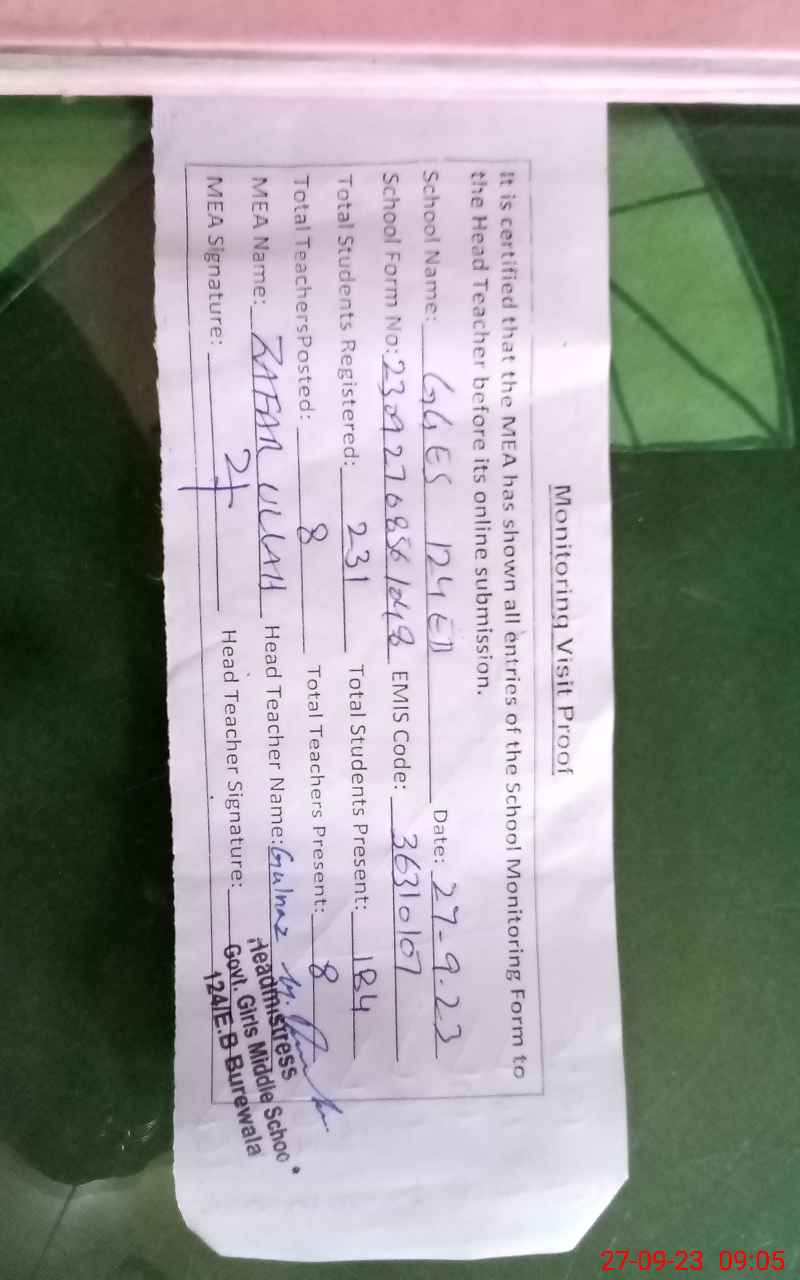 Monitoring Visit Proof
It is certified that the MEA has shown all entries of the School Monitoring Form to
the Head Teacher before its online submission.
School Name: GGES 124 EB Date: 27-9-23
School Form No: EMIS Code: 36310107
Total Students Registered: 231 Total Students Present: 184
Total TeachersPosted: 8 Total Teachers Present: 8
MEA Name: ZAFAR ULLAH Head Teacher Name: Gulnaz
MEA Signature: Head Teacher Signature:
Headmistress
Govt. Girls Middle Schoo
124/E.B Burewala
27-09-23 09:05